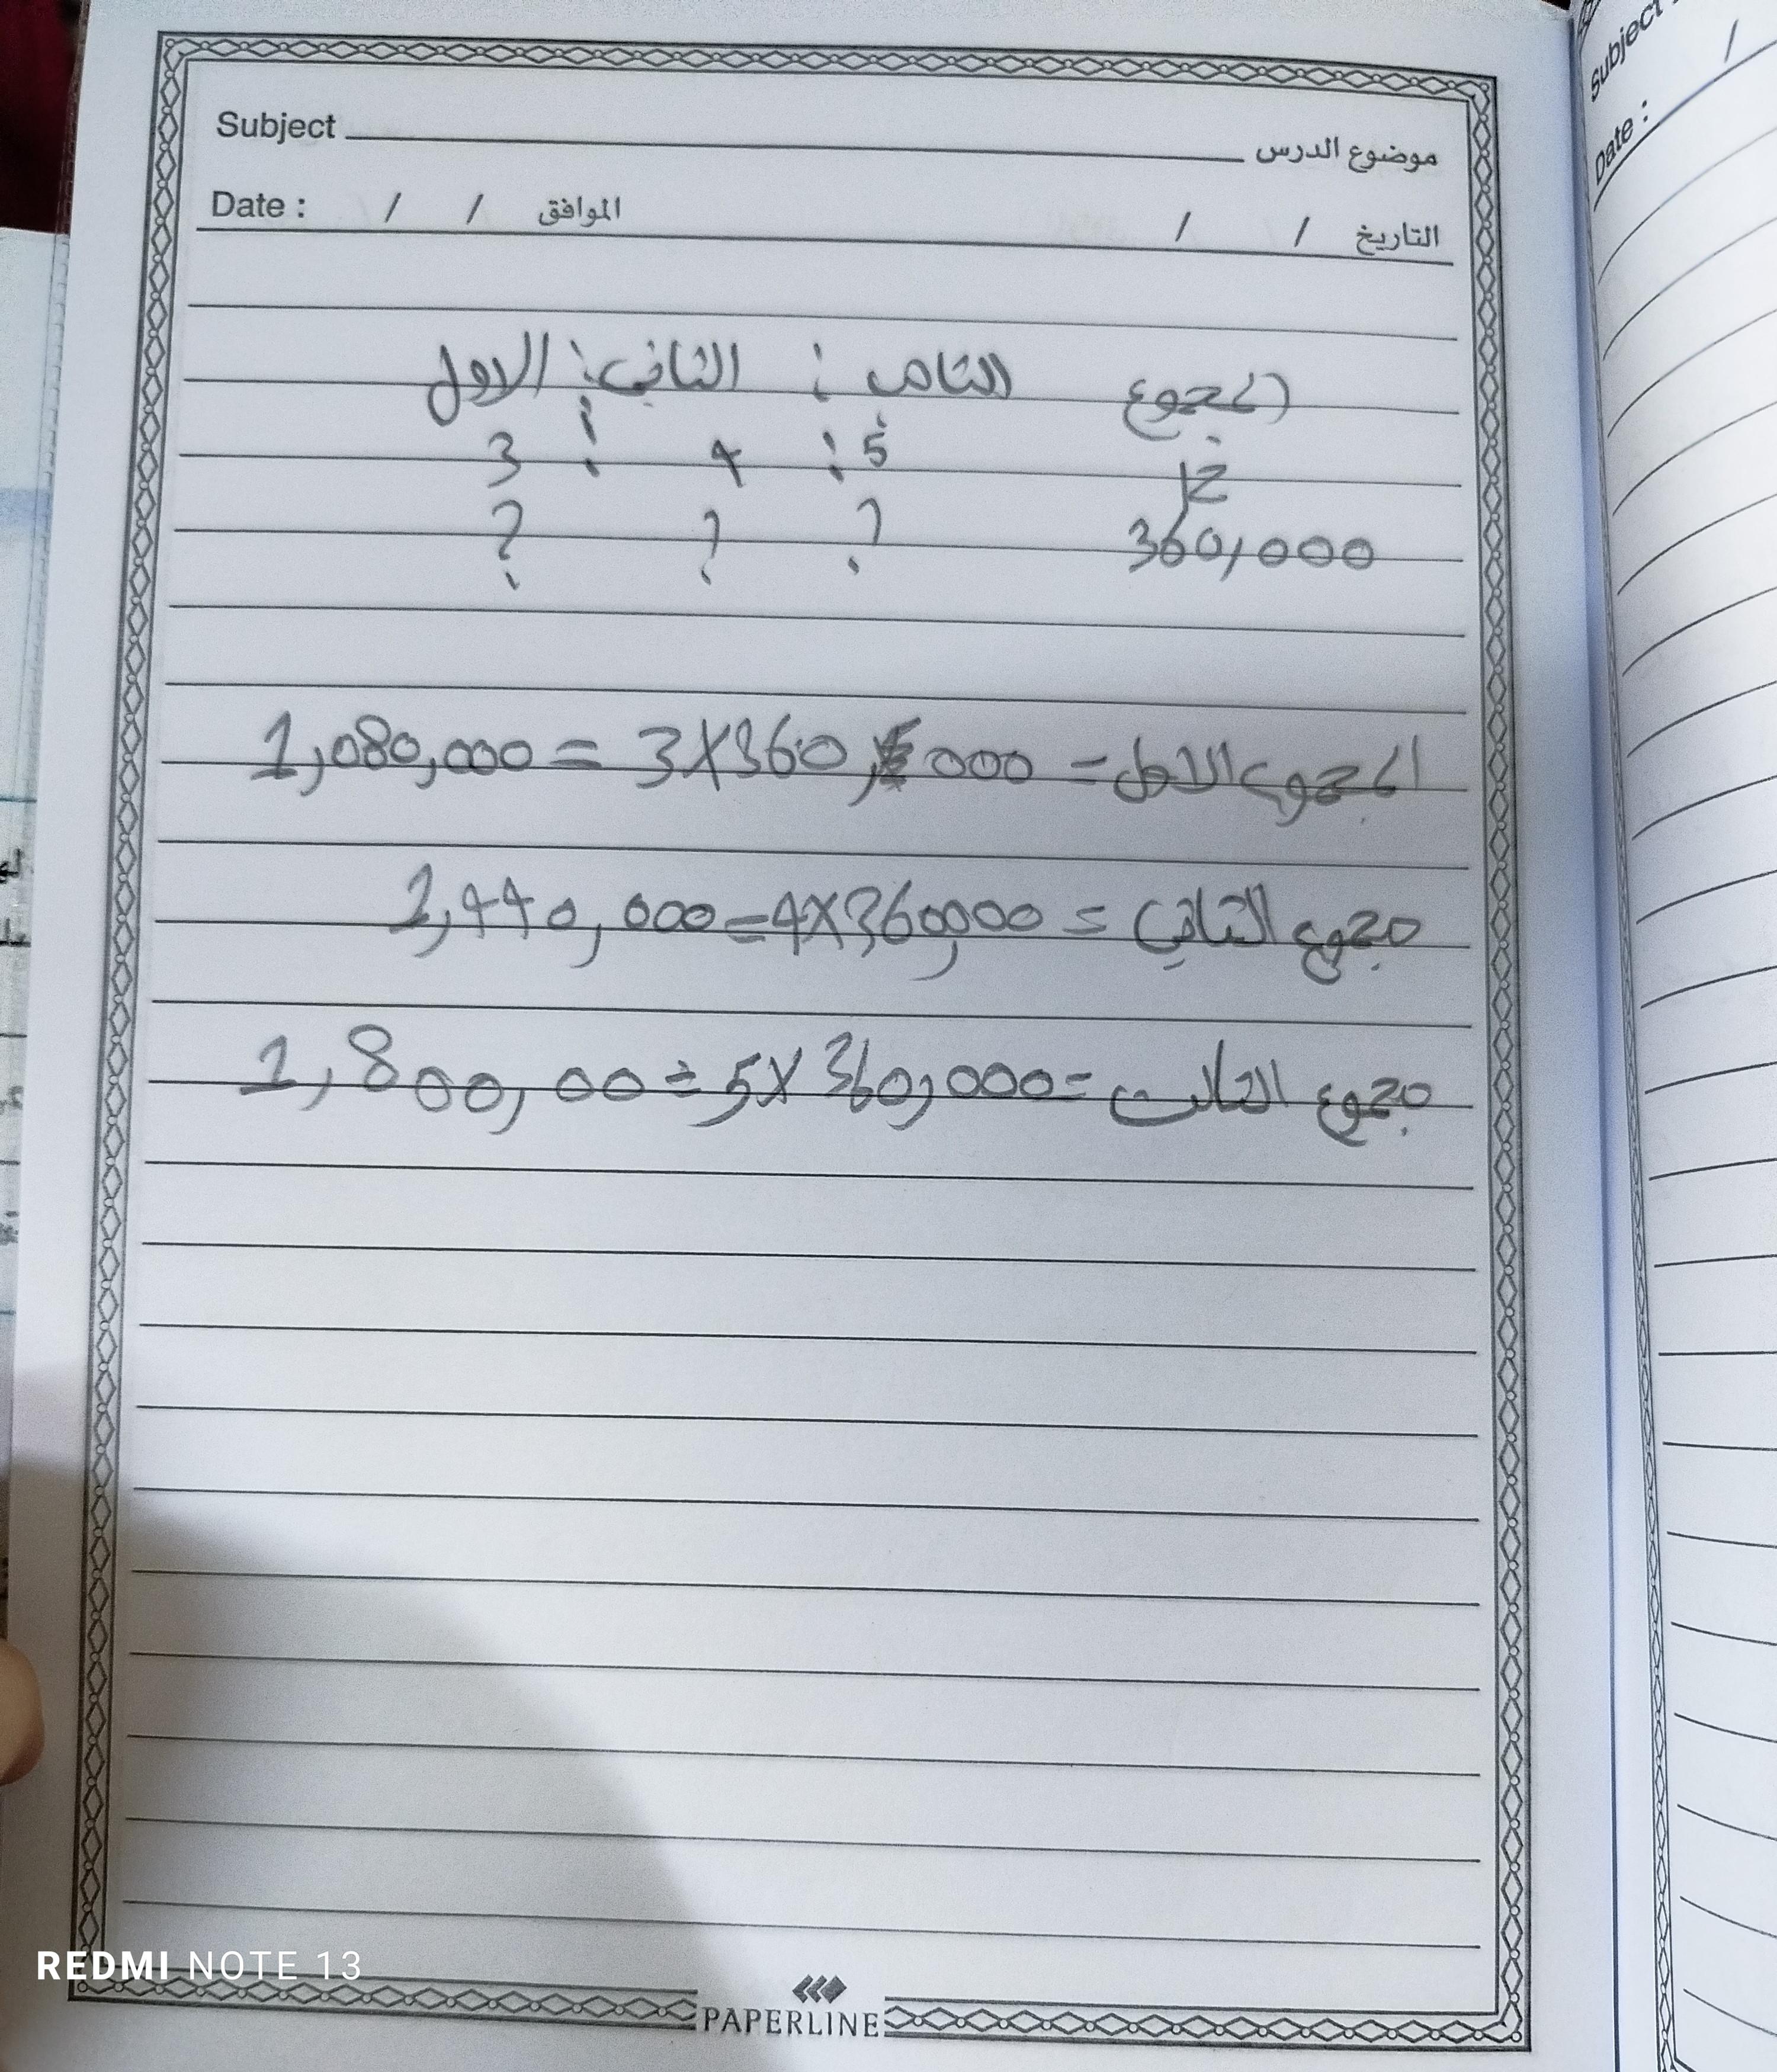 Subject موضوع الدرس
Date : / / الموافق / / التاريخ
المجموع الثالث : الثاني : الاول
12 5 : 4 : 3
360,000 ? ? ?
المجموع الاول = 3X360,000 = 1,080,000
مجموع الثاني = 4X360,000 = 1,440,000
مجموع الثالث = 5X360,000 = 1,800,00
REDMI NOTE 13
PAPERLINE
Subject
Date : /